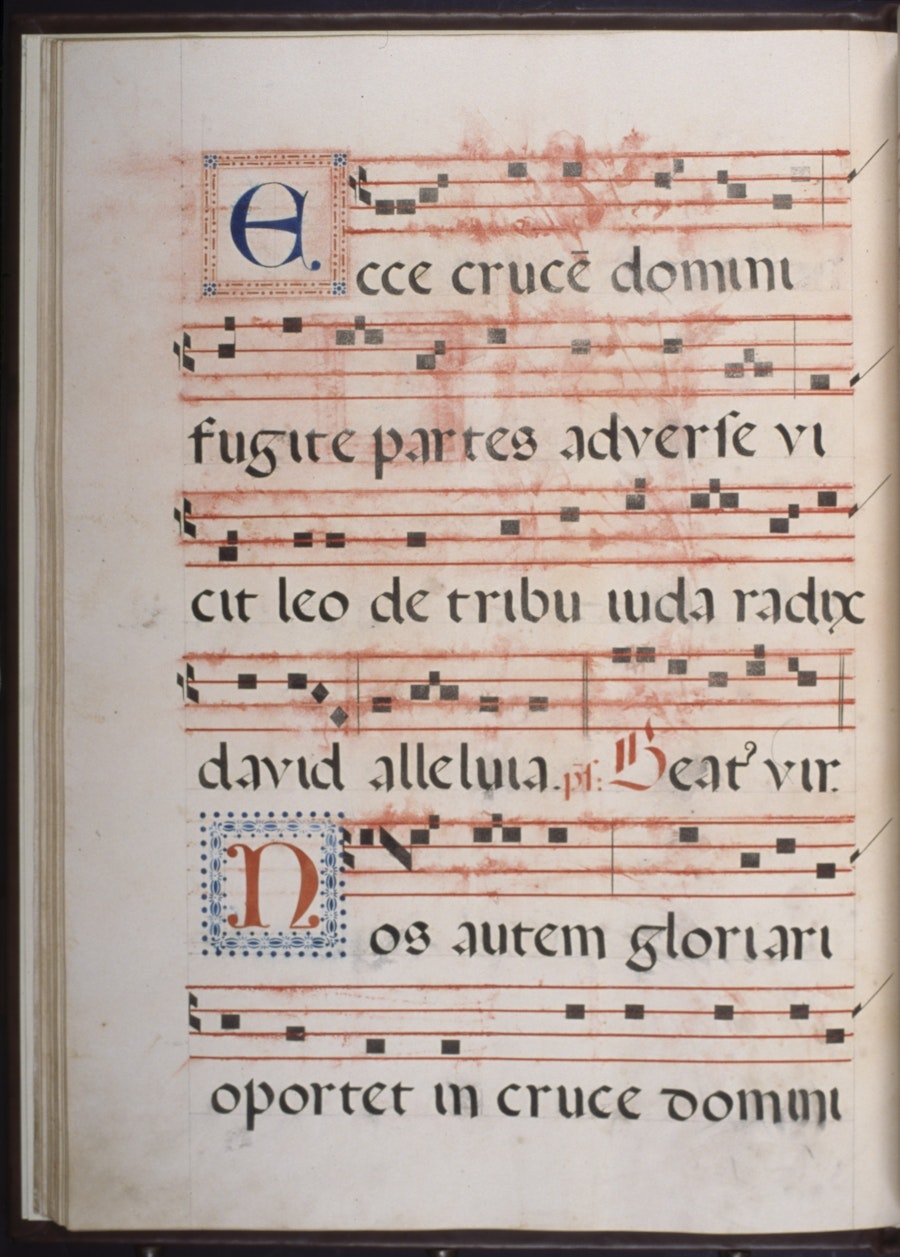 Ecce crucē domini
fugite partes adverſe vi
cit leo de tribu iuda radix
david alleluia. pſ: Beatꝰ vir.
Nos autem gloriari
oportet in cruce domini